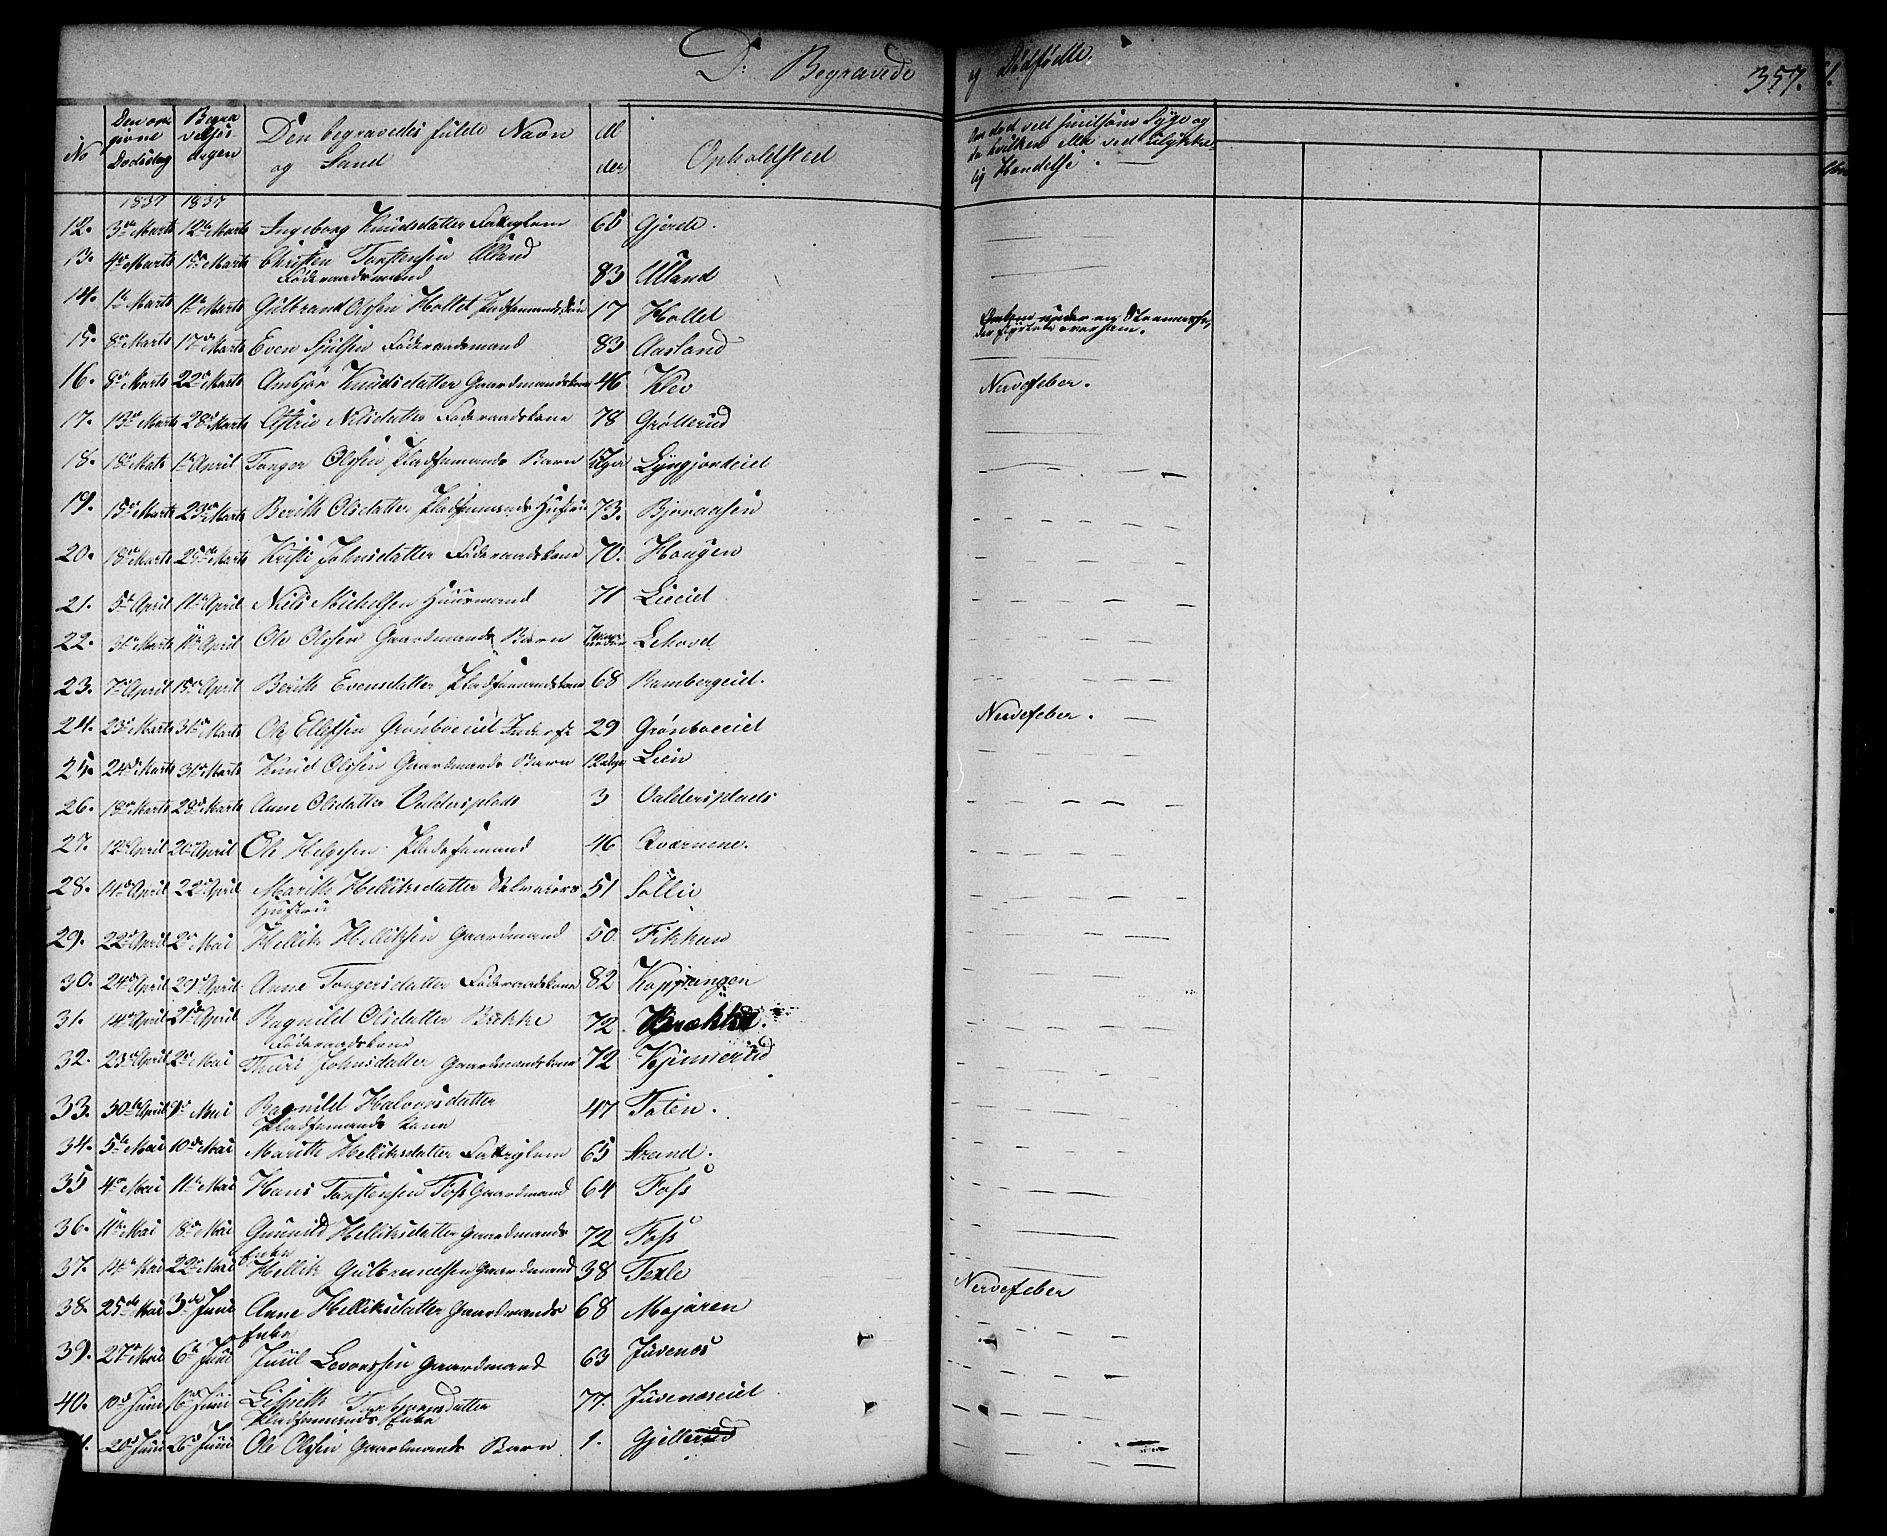 D: Begravede
og Dødfødte.
357.
No
Den an-
givne
Dødsdag
Begra
velses
dagen
Den begravedes fulde Navn
og Stand
Al
der
Opholdsted
Om død ved smitsom Syge og
da hvilken eller ved Ulykke
lig Hendelse.
1837 1837
12. 3de Marts 12te Marts Ingeborg Knudsdatter Fattiglem 65 Gjerde.
13. 4de Marts 15de Marts Christen Torstensen Ulland
Føderaadsmand 83 Ulland
14. 1te Marts 11te Marts Gulbrand Olssen Hollet Pladsemands Søn 17 Hollet
15. 8de Marts 17de Marts Even Føderaadsmand 83 Aasland
16. 8de Marts 22de Marts Ambjør Knudsdatter Gaardmandskone 46 Klev Nervefeber.
17. 13de Marts 28de Marts Astrie Nilsdatter Føderaadskone 78 Grøllerud
18. 18de Mats 1te April Torger Olssen Pladsemands Barn
19. 15de Marts 23de Marts Berith Olsdatter Pladsemands Hustru 73. Bjøraasen
20. 18de Marts 25de Marts Kristi Johnsdatter Føderaadskone 70. Haugen
21. 5te April 11te April Niels Mickelsen Huusmand 71 Lieeiet
22. 31te Marts 11te April Ole Olssen Gaardmands Barn Lehovd
23. 7de April 15de April Berith Evensdatter Pladsemandskone 68 Rambergeiet.
24. 23de Marts 31te Marts Ole Ellefsen Grønboeeiet Inderst 29 Grønboeeiet Nervefeber.
25. 24de Marts 31te Marts Knud Olssen Gaardmands Barn 12 Uger Lien
26. 18de Marts 28de Marts Anne Olsdatter Valdersplads 3 Valdersplads
27. 12te April 20de April Ole Helgesen Pladsemand 46 Qværnene.
28. 14de April 22de April Marith Helliksdatter
Hustru 51 Sollie
29. 22de April 2de Mai Hellik Helliksen Gaardmand 50. Fikkan
30. 24de April 29de April Anne Torgersdatter Føderaadskone 82 Kopjungen
31. 14de April 21de April Ragnild Olsdatter Bække
Føderaadskone 72.
32. 23de April 2de Mai Thuri Johnsdatter Gaardmandskone 72 Kjinnerud
33. 30te April 9de Mai Ragnild Halvorsdatter
Pladsemands Kone 47 Toten.
34. 5te Mai 10de Mai Marith Helliksdatter Fattiglem 65 Strand.
35 4de Mai 11te Mai Hans Torstensen Foss Gaardmand 64 Foss
36. 11te Mai 18de Mai Gunild Helliksdatter Gaardmands
Enke 72 Foss
37. 14de Mai 22de Mai Hellik Gulbrandsen Gaardmand 38 Texle Nervefeber
38. 25de Mai 3de Juni Anne Helliksdatter Gaardmands
Enke 68 Mojaren
39. 27de Mai 6te Juni Juul Levorssen Gaardmand 63 Juvenos
40. 10de Juni 16de Juni Lisbeth Torbjørnsdatter
Pladsemands Enke 77. Juvenoseiet
20de Juni 26de Juni Ole Olssen Gaardmands Barn 1. Gjellerud